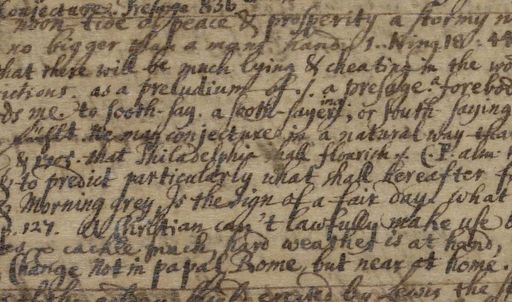 Conjecture. Presage 836
noon tide of peace & prosperity a stormy n
no bigger than a mans hand. 1. King 18. 44
that there will be much lying & cheating in the wo
ictions. as a preludium of. a presage. forebod
ds me. to sooth-say. a sooth-sayer; or south saying
man conjecture in a natural way tha
that Philadelphia shall flourish
& to predict particularly what shall hereafter f
Morning grey, is the sign of a fair day. what
p. 127. A Christian can't lawfully make use o
cackle much, hard weather is at hand,
Change not in papal Rome, but near at home.
erected by Lewis the